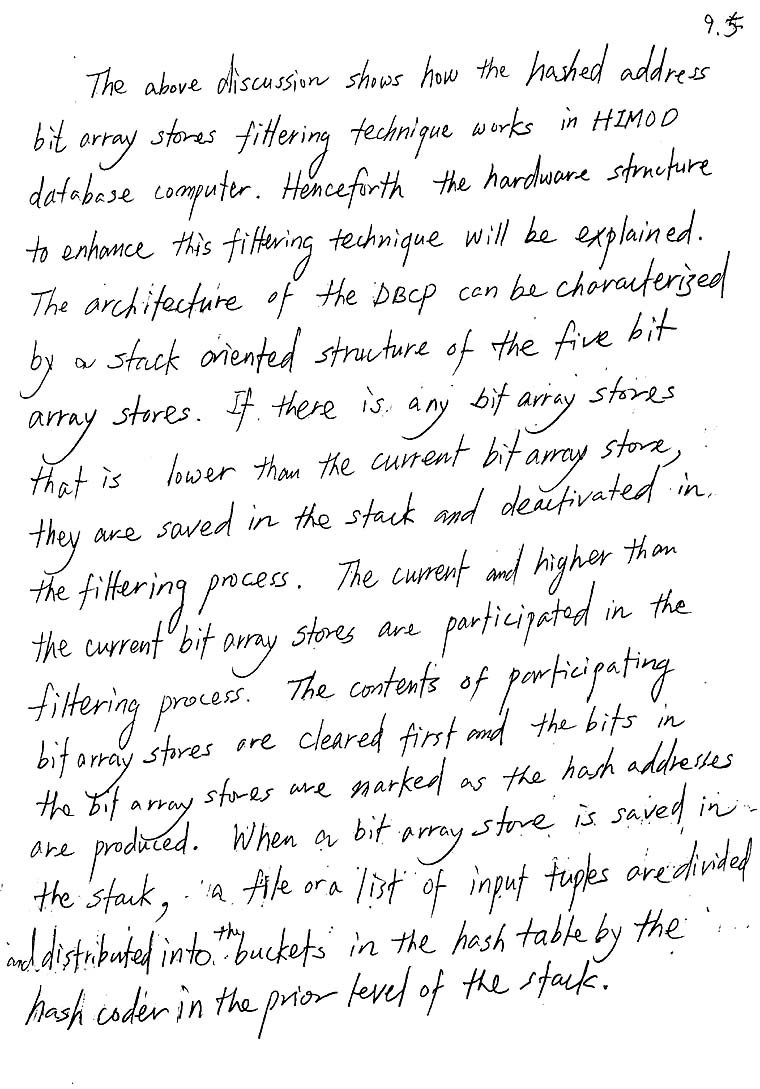 9.5
The above discussion shows how the hashed address
bit array stores filtering technique works in HIMOD
database computer. Henceforth the hardware structure
to enhance this filtering technique will be explained.
The architecture of the DBCP can be characterized
by a stack oriented structure of the five bit
array stores. If there is any bit array stores
that is lower than the current bit array store,
they are saved in the stack and deactivated in
the filtering process. The current and higher than
the current bit array stores are participated in the
filtering process. The contents of participating
bit array stores are cleared first and the bits in
the bit array stores are marked as the hash addresses
are produced. When a bit array store is saved in
the stack, a file or a list of input tuples are divided
and distributed into the buckets in the hash table by the
hash coder in the prior level of the stack.